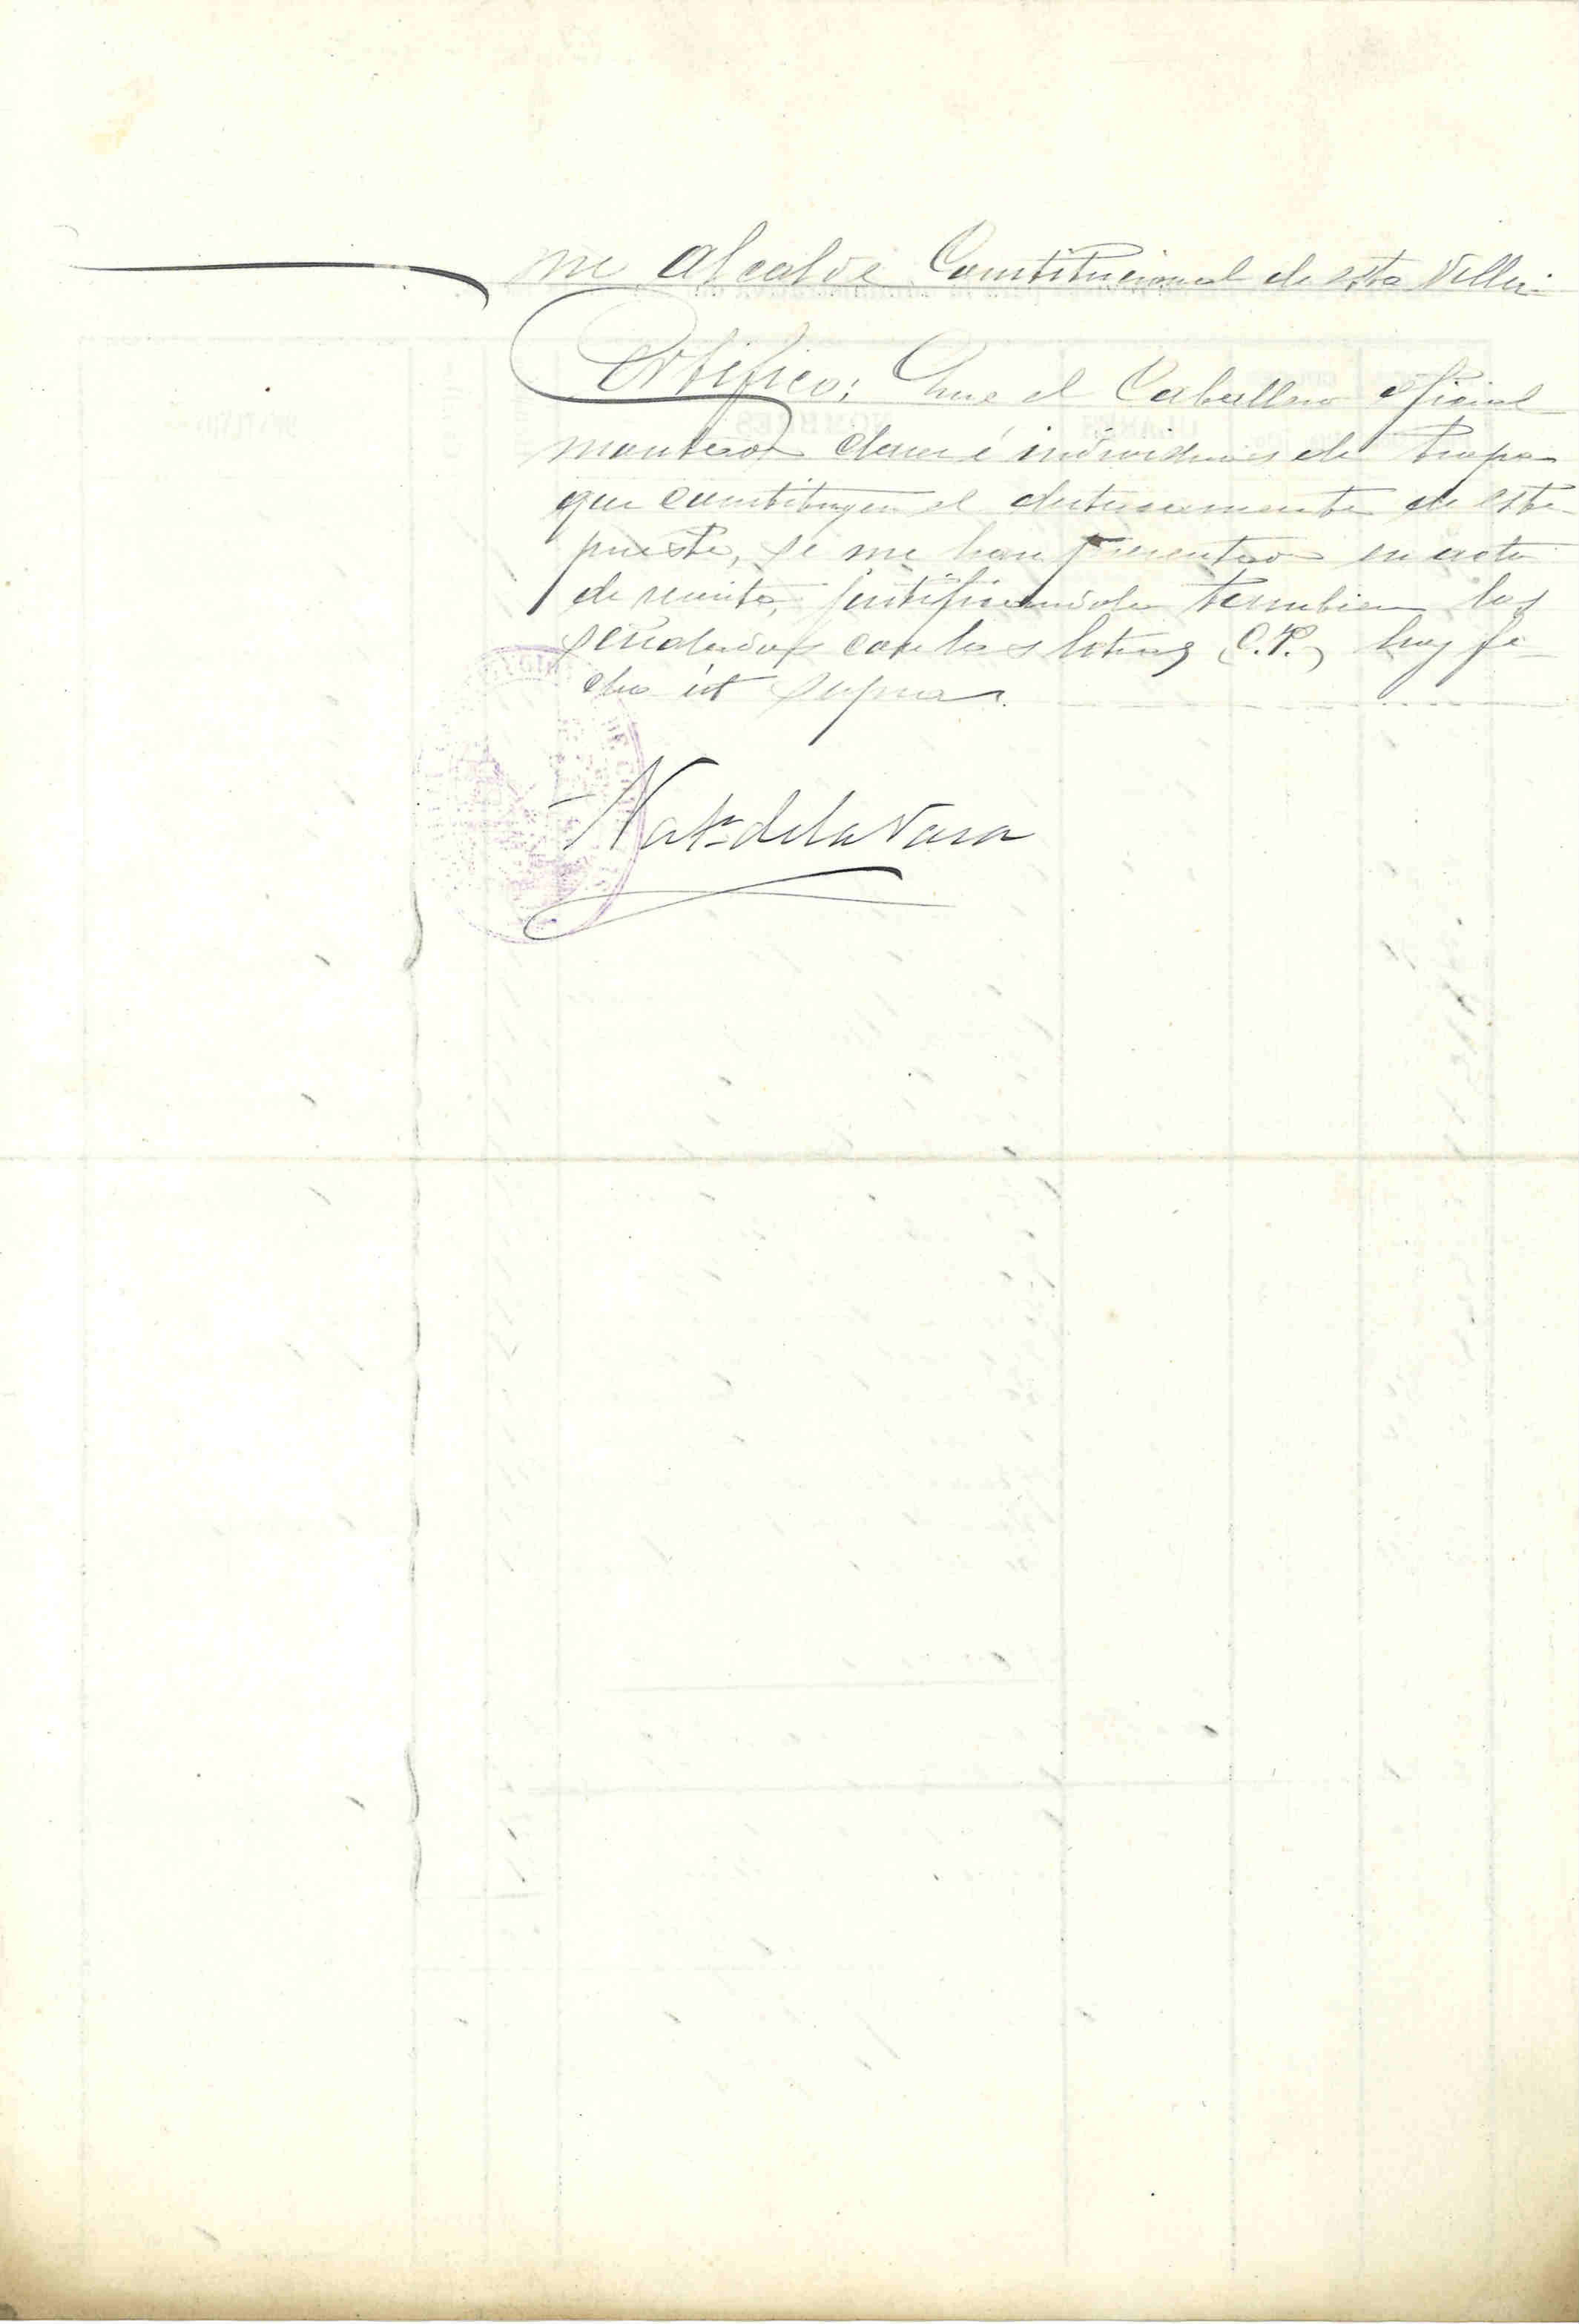 Alcalde Constitucional de esta Villa.
Certifico: Que el Caballero oficial
clases é individuos de tropa
que constituyen el destacamento de este
puesto, se me han presentado en acto
de revista, justificandola tambien los
señalados con las letras (C.P.) hoy fe-
cha út supra.
de la Vara